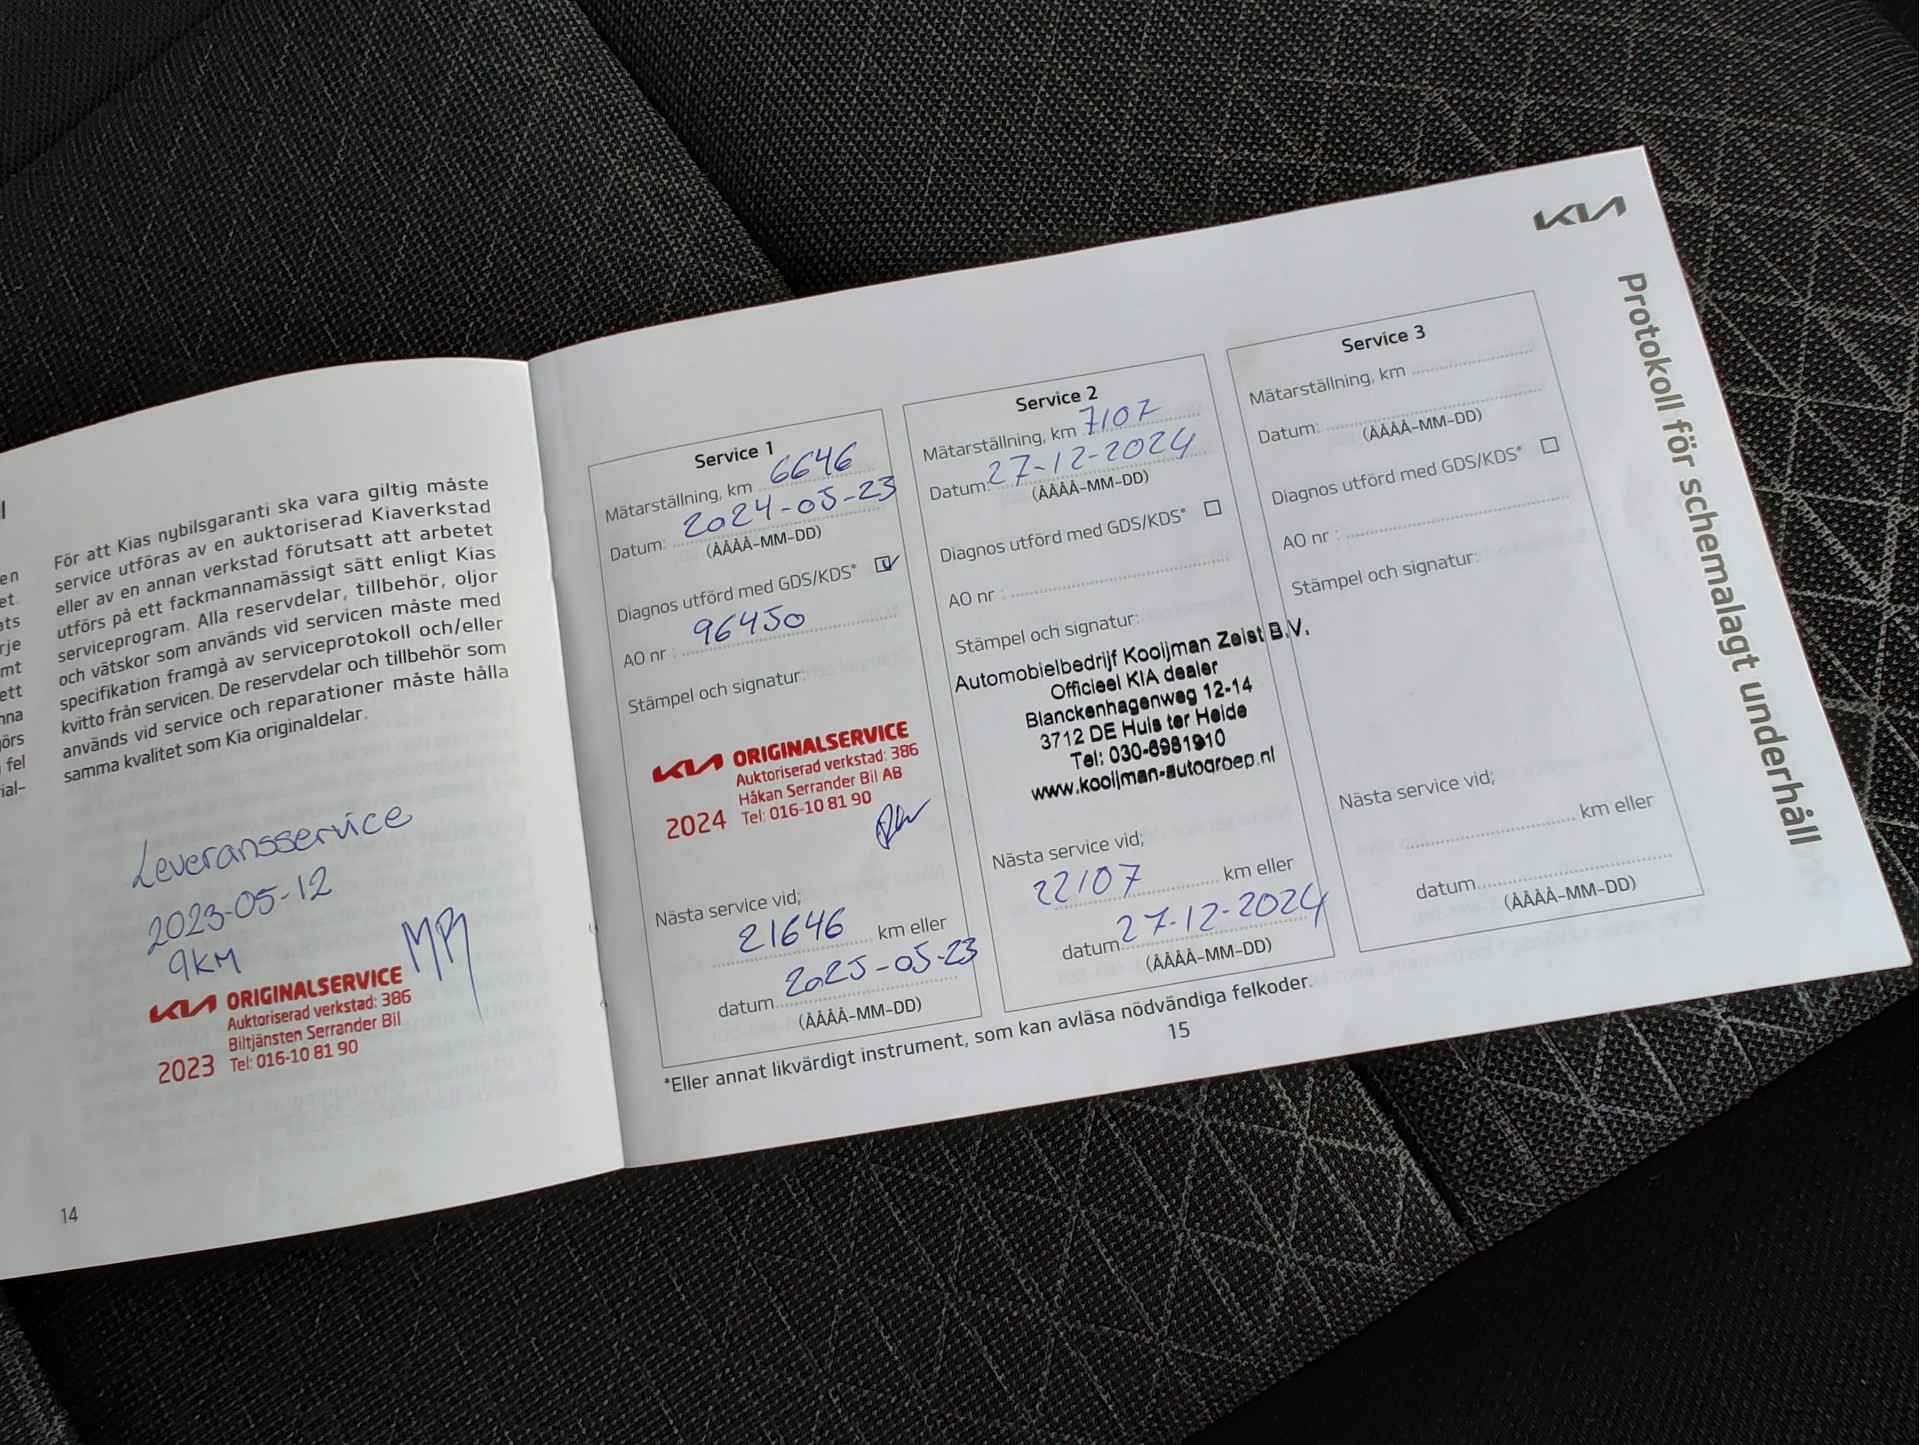 l
en
et.
ats
rje
mt
ett
nna
görs
fel
ial-
För att Kias nybilsgaranti ska vara giltig måste
service utföras av en auktoriserad Kiaverkstad
eller av en annan verkstad förutsatt att arbetet
utförs på ett fackmannamässigt sätt enligt Kias
serviceprogram. Alla reservdelar, tillbehör, oljor
och vätskor som används vid servicen måste med
specifikation framgå av serviceprotokoll och/eller
kvitto från servicen. De reservdelar och tillbehör som
används vid service och reparationer måste hålla
samma kvalitet som Kia originaldelar.
Leveransservice
2023-05-12
9KM
KIA ORIGINALSERVICE
Auktoriserad verkstad: 386
Biltjänsten Serrander Bil
2023 Tel: 016-10 81 90
14
KIA
Protokoll för schemalagt underhåll
Service 1
Mätarställning, km 6646
Datum: 2024-05-23
(ÅÅÅÅ-MM-DD)
Diagnos utförd med GDS/KDS*
AO nr : 96450
Stämpel och signatur:
KIA ORIGINALSERVICE
Auktoriserad verkstad: 386
Håkan Serrander Bil AB
2024 Tel: 016-10 81 90
Nästa service vid;
21646 km eller
datum 2025-05-23
(ÅÅÅÅ-MM-DD)
Service 2
Mätarställning, km 7107
Datum: 27-12-2024
(ÅÅÅÅ-MM-DD)
Diagnos utförd med GDS/KDS*
AO nr :
Stämpel och signatur:
Automobielbedrijf Kooijman Zeist B.V.
Officieel KIA dealer
Blanckenhagenweg 12-14
3712 DE Huis ter Heide
Tel: 030-6981910
www.kooijman-autogroep.nl
Nästa service vid;
22107 km eller
datum 27-12-2024
(ÅÅÅÅ-MM-DD)
Service 3
Mätarställning, km
Datum:
(ÅÅÅÅ-MM-DD)
Diagnos utförd med GDS/KDS*
AO nr :
Stämpel och signatur:
Nästa service vid;
km eller
datum
(ÅÅÅÅ-MM-DD)
*Eller annat likvärdigt instrument, som kan avläsa nödvändiga felkoder.
15